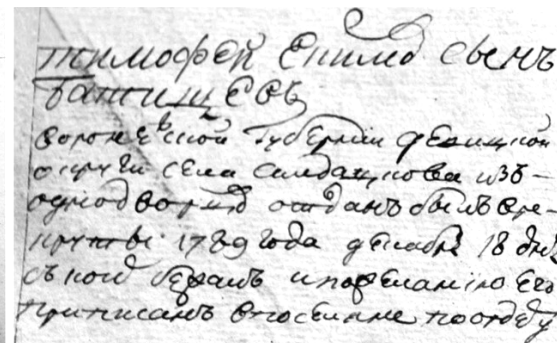 Тимофей Епимов сынъ
батищевъ
воронежской губернiи девицкой
округи села Солдацкова изъ
однодворцов отданъ былъ вре-
круты 1789 года декабря 18 дня
съ коей и пожеланiю Его
приписанъ впоселние поотделу